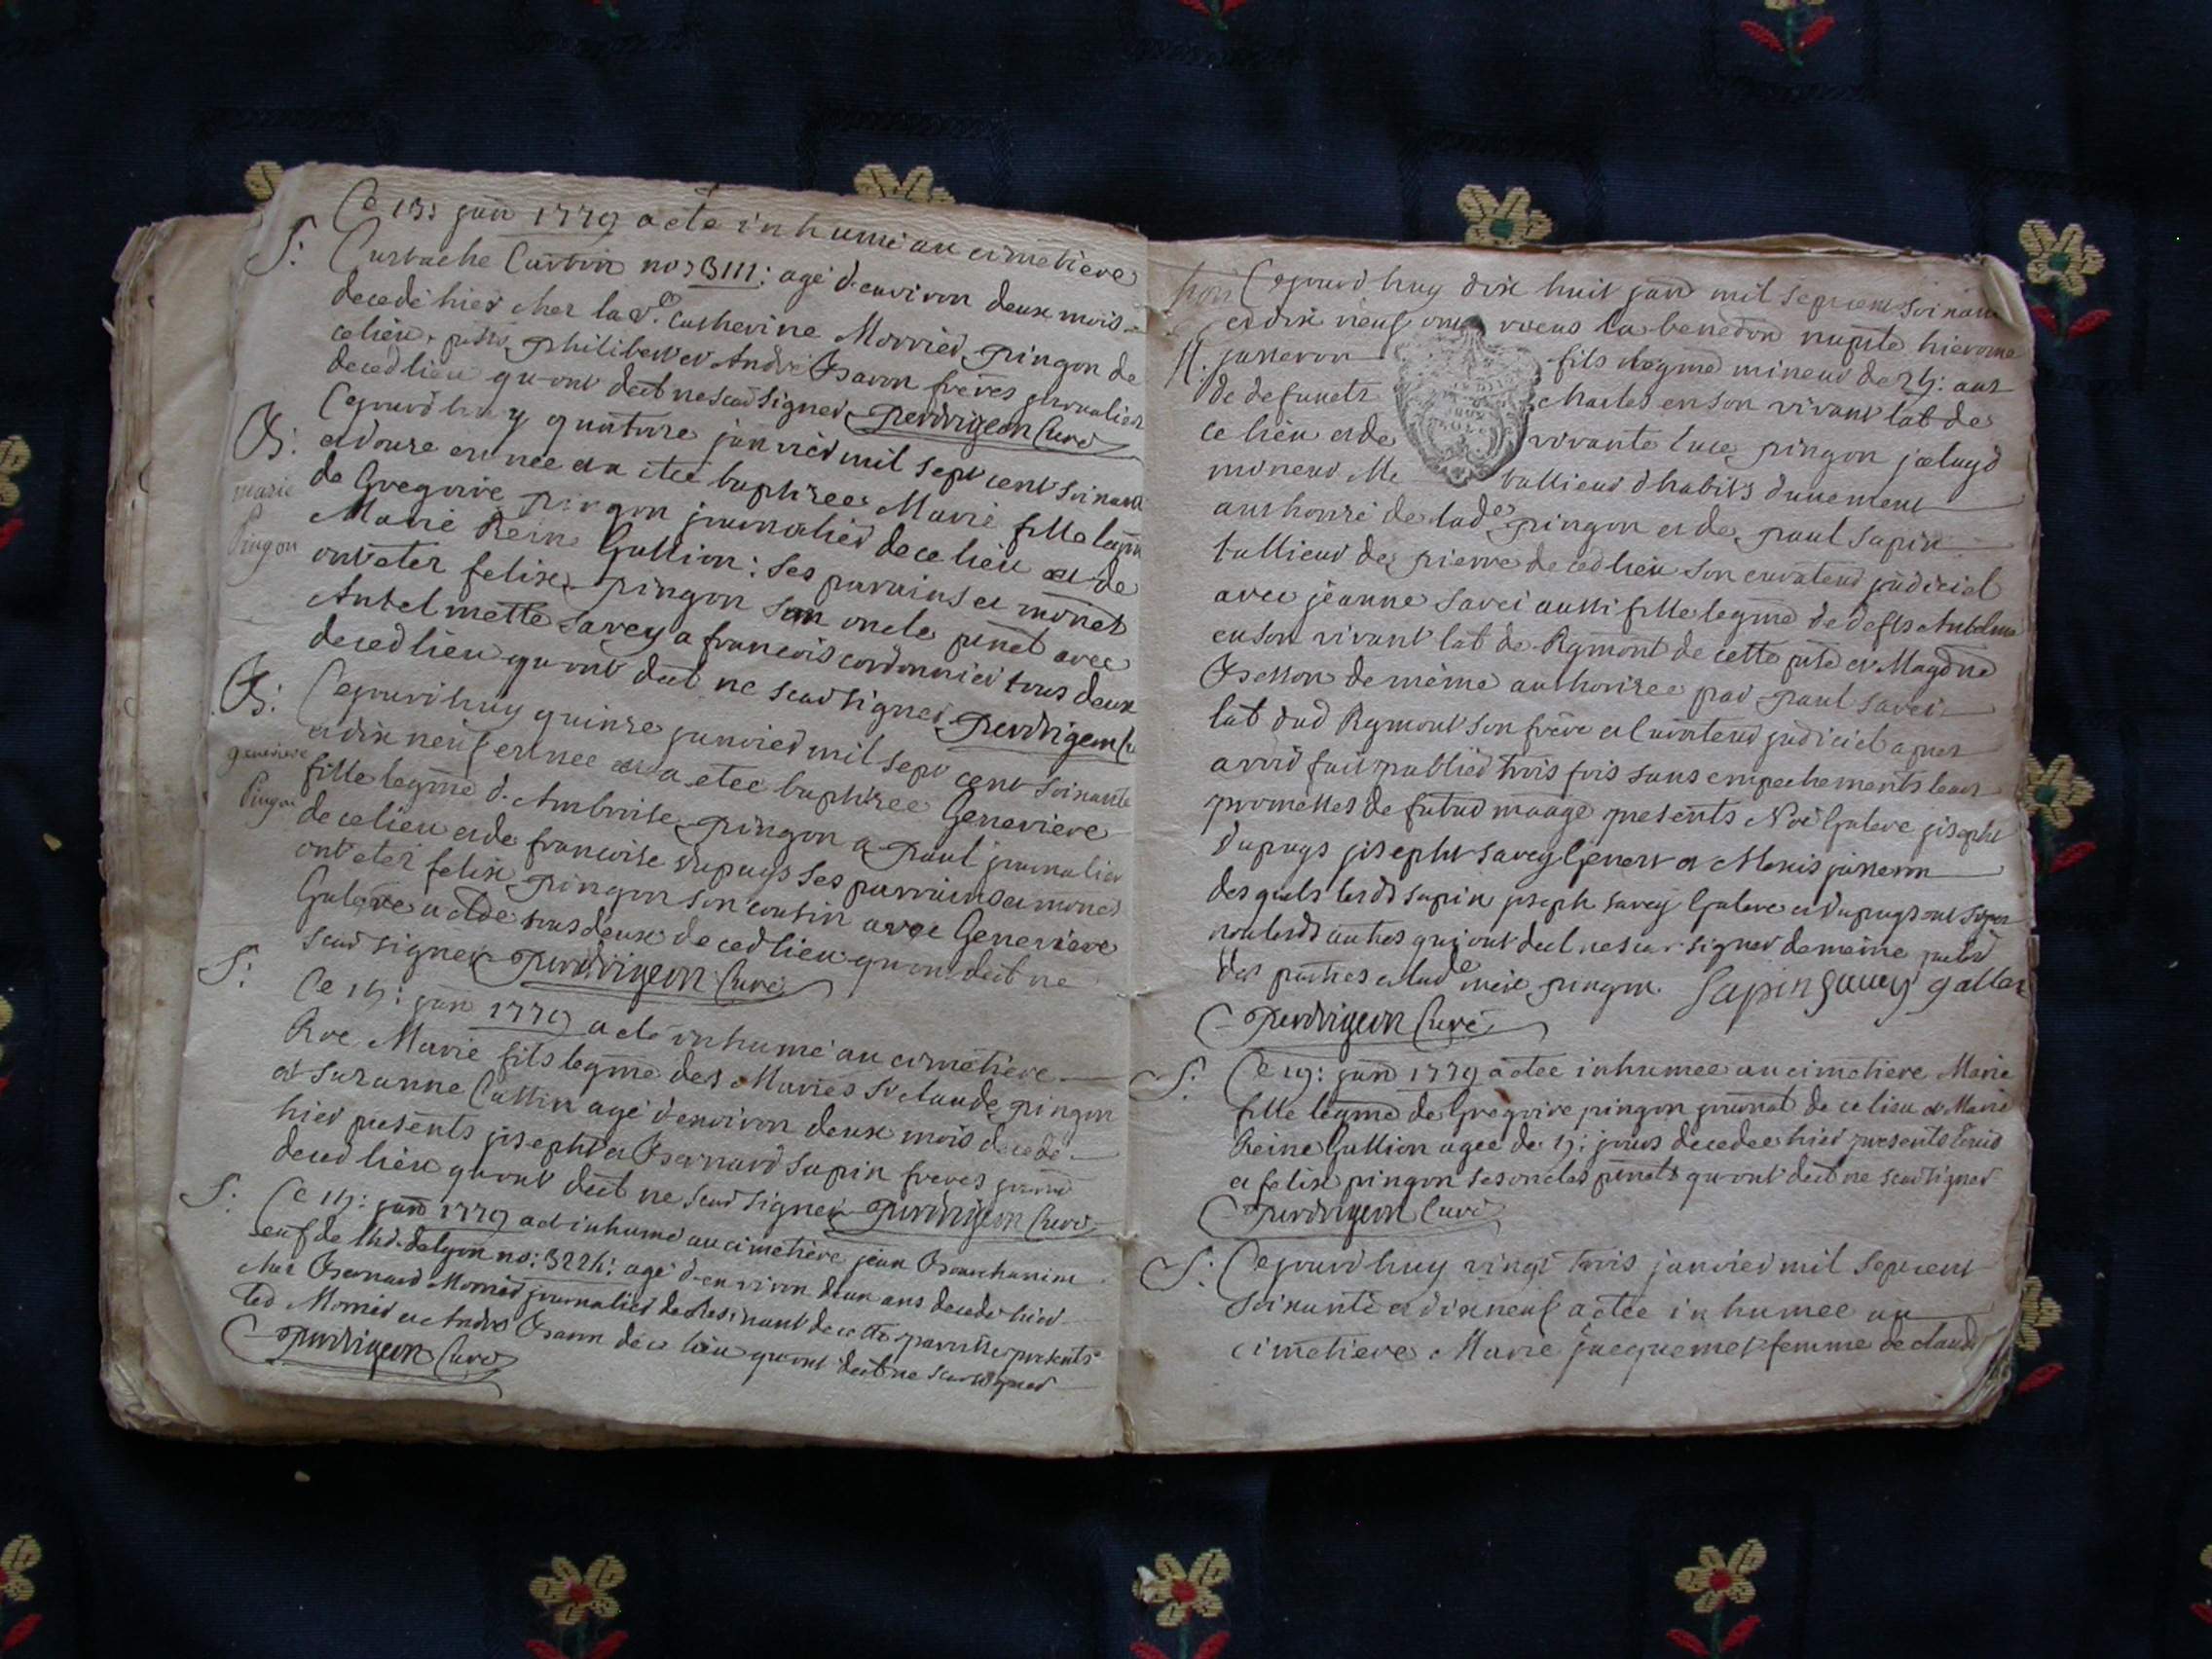 Ce 13: jan 1779 a ete inhumé au cimetiere
S: Eustache no: 3111: agé d'environ deux mois
decedé hier chez la Ve. Catherine Morrier pingon de
ce lieu, philibert et André Baron freres journalier
decedlieu qu-ont declt ne scav signer perdrigeon Curé
B: Cejourdhuy quatorze janvier mil sept cent soixante
et est nee et a etee baptizee Marie fille
marie Pingon
de Gregoire pingon journalier de ce lieu et de
Marie Reine Gullion: ses parains et
ont etez felix pingon son oncle avec
Antelmette Savey a francois cordonnier tous deux
decedlieu qu-ont declt ne scav signer perdrigeon
B: Cejourdhuy quinze janvier mil sept cent soixante
et dix neuf est nee et a etee baptizee Genevieve
genevieve Pingon
fille legme d. Ambroise pingon a paul journalier
de ce lieu et de francoise dupuys ses parrains et
ont etez felix pingon son cousin avec Genevieve
Galere tous deux de cedlieu qu-ont declt ne
scav signer perdrigeon Curé
S: Ce 15: jan 1779 a ete inhumé au cimetiere
Roc Marie fils legme des Maries Sr claude pingon
et Suzanne Cattin agé d'environ deux mois decedé
hier presents joseph et Bernard Sapin freres
decedlieu qu-ont declt ne scav signer perdrigeon Curé
S: Ce 15: jan 1779 a et inhumé au cimetiere jean
enf de lhd. delyon no: 3224: agé d-environ deux ans decedé hier
chez Bernard Morrier journalier de cette paroisse presents
Led Morrier et André Baron de ce lieu qu-ont declt ne scav signer
perdrigeon Curé
Cejourdhuy dix huit jan mil sept cent soixante
et dix neuf ont receus la benedon nuptle hierome
M: jasseron fils legme mineur de 24: ans
de defunct charles en son vivant lab de
ce lieu et de vivante luce pingon
mineur Me tallieur dhabits duement
authorisé de lade pingon et de paul Sapin
tallieur de pierre de cedlieu son curateur judiciel
avec jeanne Savei aussi fille legme de deft Antelme
en son vivant lab de Rymont de cette et Magdne
Besson de même authorisee par paul Savei
lab dud Rymont son frere et curateur judiciel apres
avoir fait publier trois fois sans empechements leurs
promesses de futur maage presents Noë Galere joseph
dupuys joseph Savey Genert et Monis jasseron
des quels lesds Sapin joseph Savey Galere et dupuys ont signé
non lesds autres qui ont declt ne scav signer de meme
des parties et lade mere pingon. Sapin Savey
perdrigeon Curé
S: Ce 19: jan 1779 a etee inhumee au cimetiere Marie
fille legme de Gregoire pingon journal de ce lieu et Marie
Reine Gullion agee de 5: jours decedee hier presents
et felix pingon ses oncles qu-ont declt ne scav signer
perdrigeon Curé
S: Cejourdhuy vingt trois janvier mil sept cent
soixante et dix neuf a etee inhumee au
cimetiere Marie jacquemet femme de claude